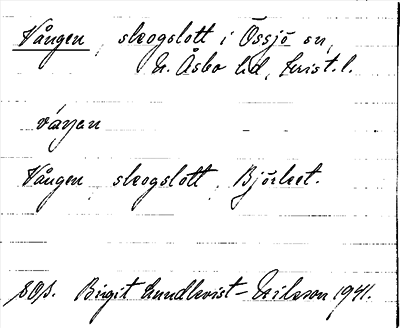 Vången, skogslott i Össjö sn,
N. Åsbo hd, Krist. l.
váŋən
Vången, skogslott, Björket.
SOJ. Birgit Lundkvist-Nilsson 1941.